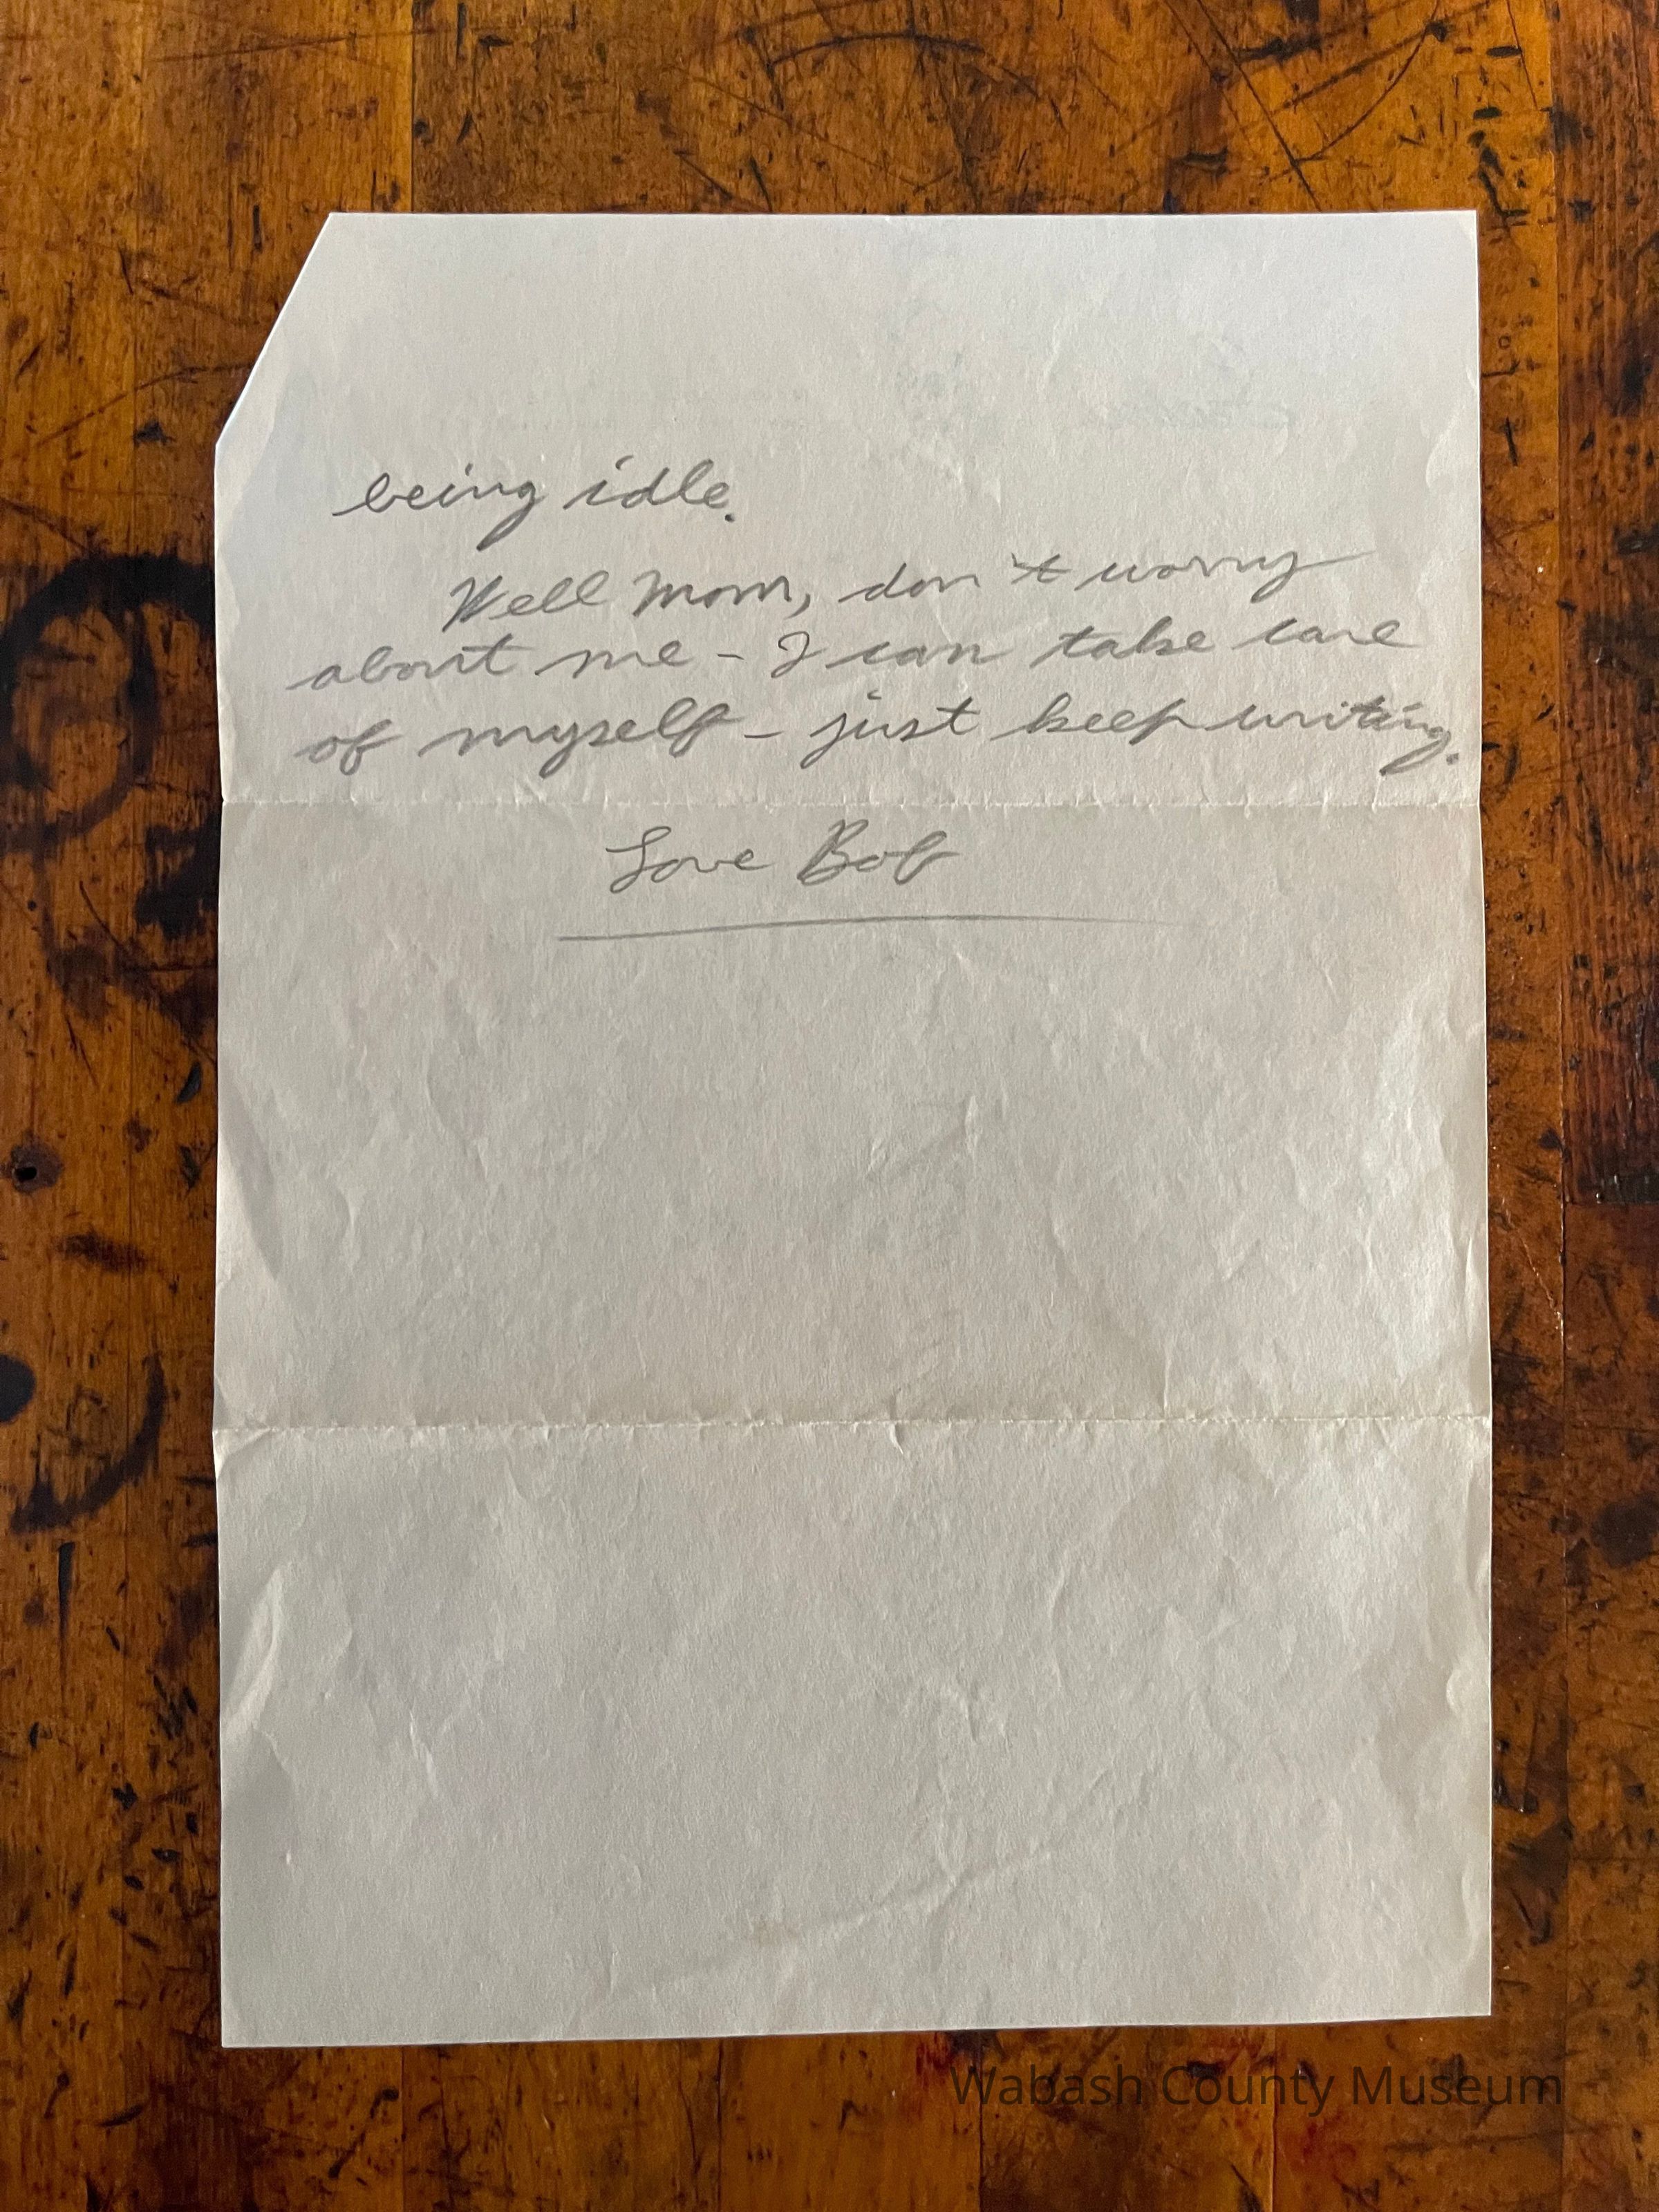 being idle.
Well Mom, don't worry
about me - I can take care
of myself - just keep writing.
Love Bob
Wabash County Museum